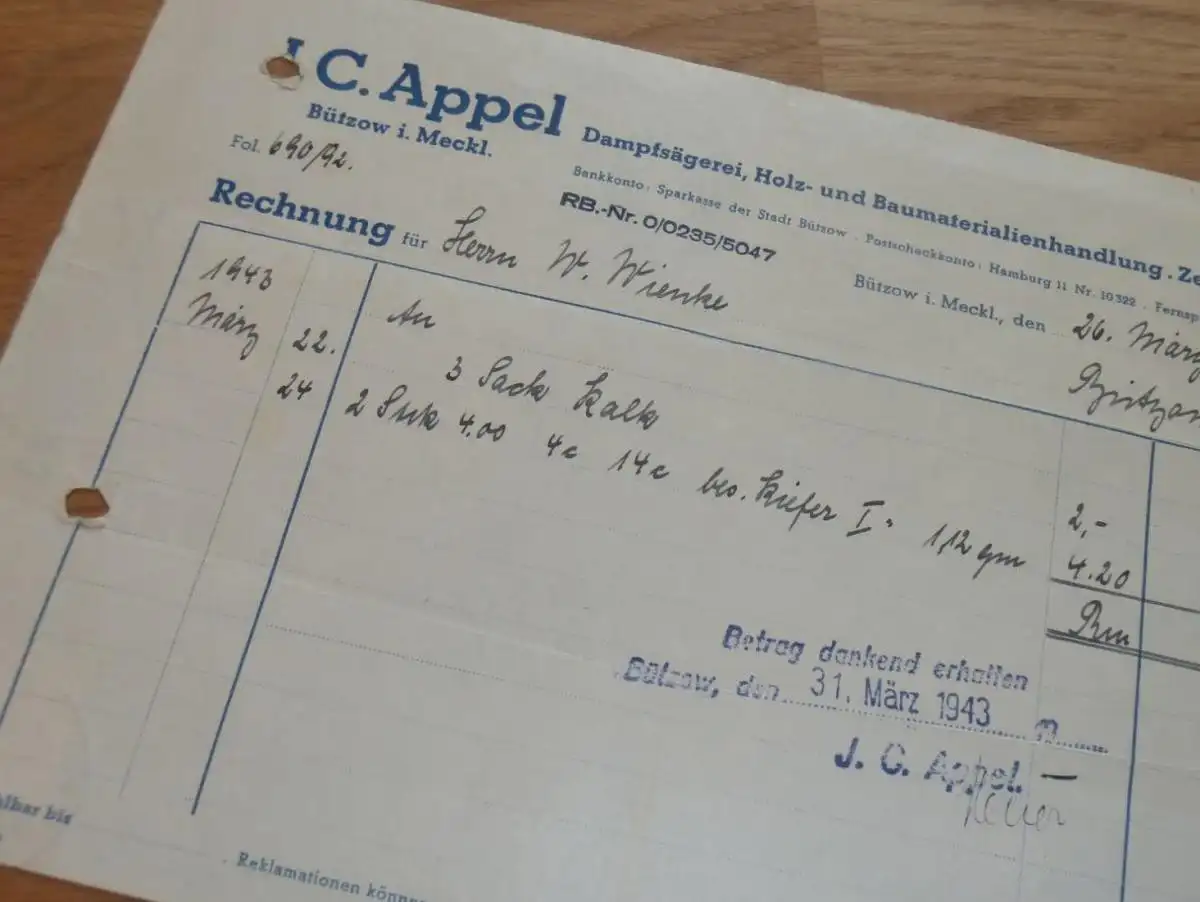 J. C. Appel Dampfsägerei, Holz- und Baumaterialienhandlung . Ze
Bützow i. Meckl.
Bankkonto: Sparkasse der Stadt Bützow . Postscheckkonto: Hamburg 11 Nr. 10322 . Fernsp
Fol. 690/92.
RB.-Nr. 0/0235/5047
Bützow i. Meckl., den 26. März
Rechnung für Herrn W. Wienke
Bützow
1943
März 22. An 3 Sack Kalk 2,-
24 2 Stck 4.00 4c 14c bes. Kiefer I. 1,12 qm 4.20
Rm
Betrag dankend erhalten
Bützow, den 31. März 1943
J. C. Appel
hlbar bis
Reklamationen könne